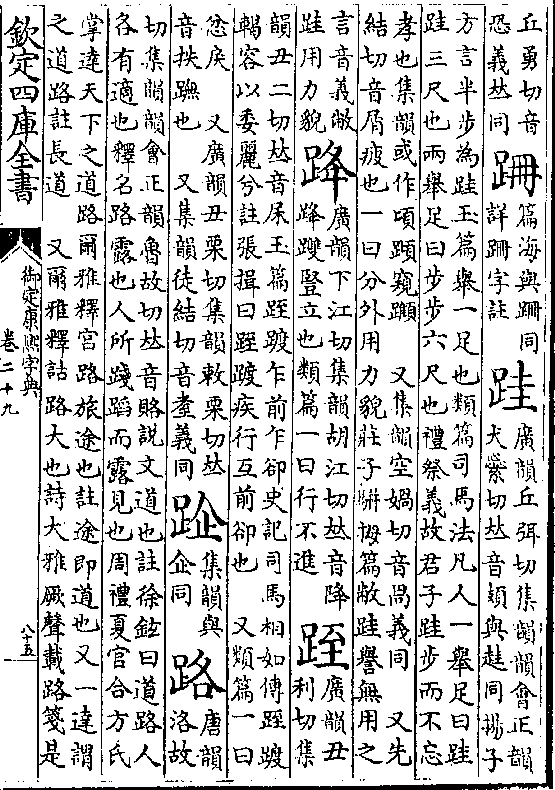 丘勇切音
恐義𠀤同
跚
篇海與跚同
詳跚字註
跬
廣韻丘弭切集韻韻會正韻
犬蘂切𠀤音頍與䞨同揚子
方言半步為跬玉篇舉一足也類篇司馬法凡人一舉足曰跬
跬三尺也兩舉足曰步步六尺也禮祭義故君子跬步而不忘
孝也集韻或作頃蹞窺 又集韻空媧切音咼義同 又先
結切音屑疲也一曰分外用力貌莊子駢拇篇敝跬譽無用之
言音義敝
跬用力貌
跭
廣韻下江切集韻胡江切𠀤音降
跭䠫豎立也類篇一曰行不進
跮
廣韻丑
利切集
韻丑二切𠀤音屎玉篇跮踱乍前乍卻史記司馬相如傳跮踱
輵容以委麗兮註張揖曰跮踱疾行互前卻也 又類篇一曰
忿戾 又廣韻丑栗切集韻敕栗切𠀤
音抶也 又集韻徒結切音耋義同
集韻與
企同
路
唐韻
洛故
切集韻韻會正韻魯故切𠀤音賂說文道也註徐鉉曰道路人
各有適也釋名路露也人所踐蹈而露見也周禮夏官合方氏
掌達天下之道路爾雅釋宮路旅途也註途即道也又一達謂
之道路註長道 又爾雅釋詁路大也詩大雅厥聲載路箋是
欽定四庫全書
御定康熙字典
卷二十九
八十五